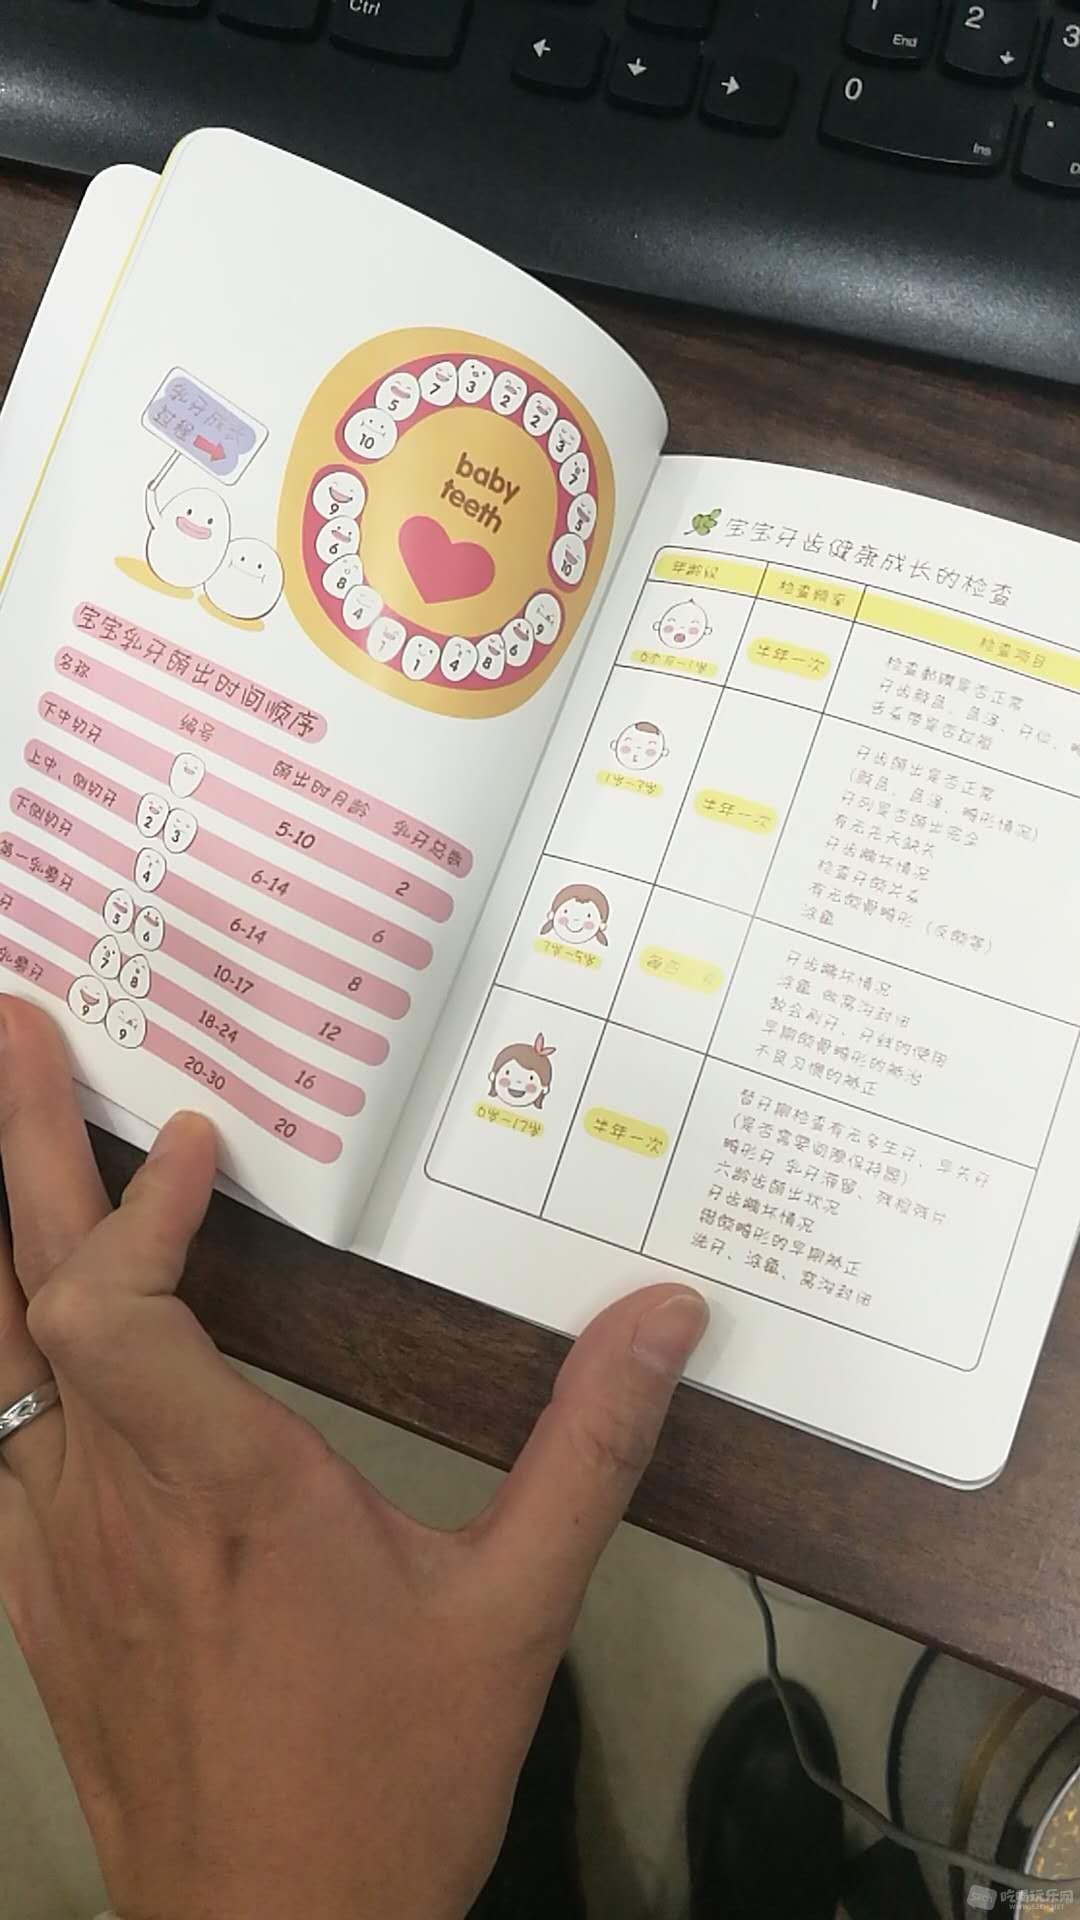 Ctrl
End
2
3
0
Ins
乳牙成长
过程
baby
teeth
5 7 3 2 2 3 7 5 10
10
9 6 8 4 1 1 4 8 6 9
宝宝乳牙萌出时间顺序
名称 编号 萌出时月龄 乳牙总数
下中切牙 5-10 2
上中、侧切牙 2 3 6-14 6
下侧切牙 4 6-14 8
第一乳磨牙 5 6 10-17 12
牙 7 8 18-24 16
乳磨牙 9 9 20-30 20
宝宝牙齿健康成长的检查
年龄段 检查频率 检查项目
半年一次
检查黏膜是否正常
牙齿颜色、色泽、牙位、
舌系带是否过短
半年一次
牙齿萌出是否正常
(颜色、色泽、畸形情况)
牙列是否萌出完全
有无先天缺失
牙齿龋坏情况
检查牙颌关系
有无颌骨畸形 (反颌等)
涂氟
牙齿龋坏情况
涂氟 做窝沟封闭
教会刷牙、牙线的使用
早期颌骨畸形的矫治
不良习惯的矫正
半年一次
替牙期检查有无多生牙、早失牙
(是否需要间隙保持器)
畸形牙 乳牙滞留、残根残片
六龄齿萌出状况
牙齿龋坏情况
错颌畸形的早期矫正
洗牙、涂氟、窝沟封闭
吃喝玩乐网